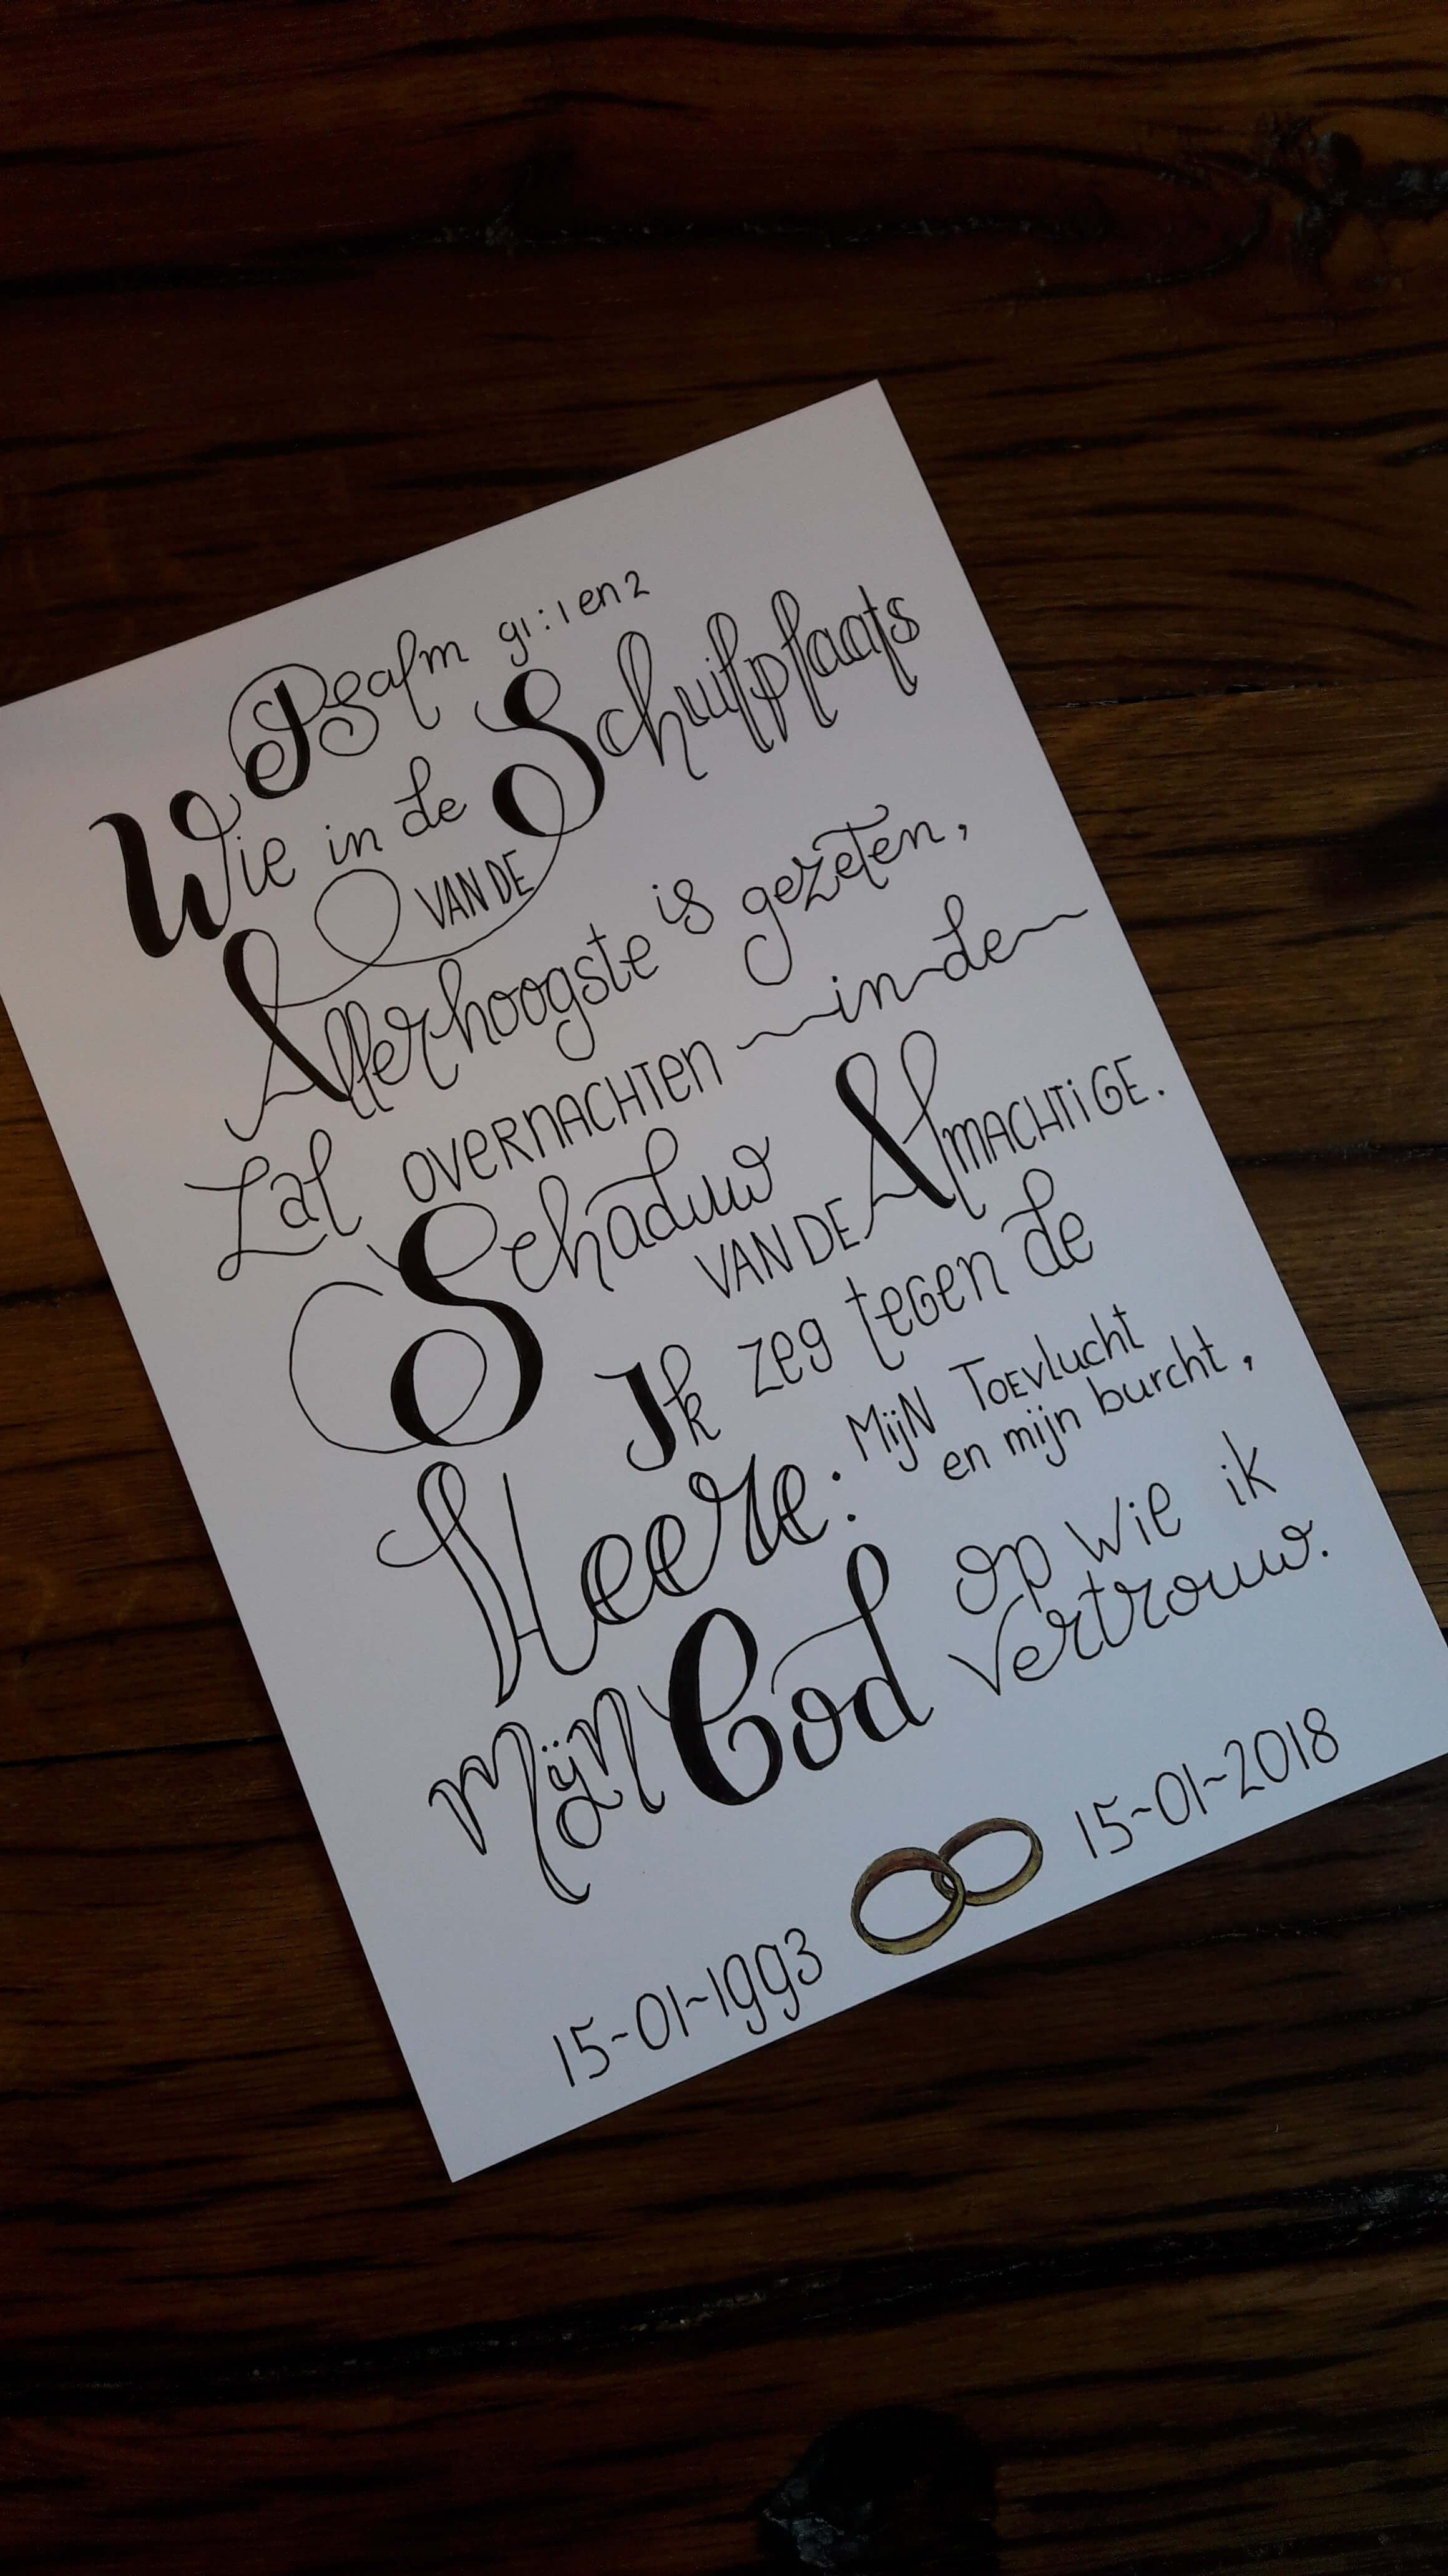 Psalm 91:1 en 2
Wie in de Schuilplaats
VAN DE
Allerhoogste is gezeten,
Zal OVERNACHTEN in de
Schaduw VAN DE AlMACHTIGE.
Ik zeg tegen de
Heere: MijN TOEVlucht
en mijn burcht,
Mijn God op wie ik
vertrouw.
15-01-1993 15-01-2018